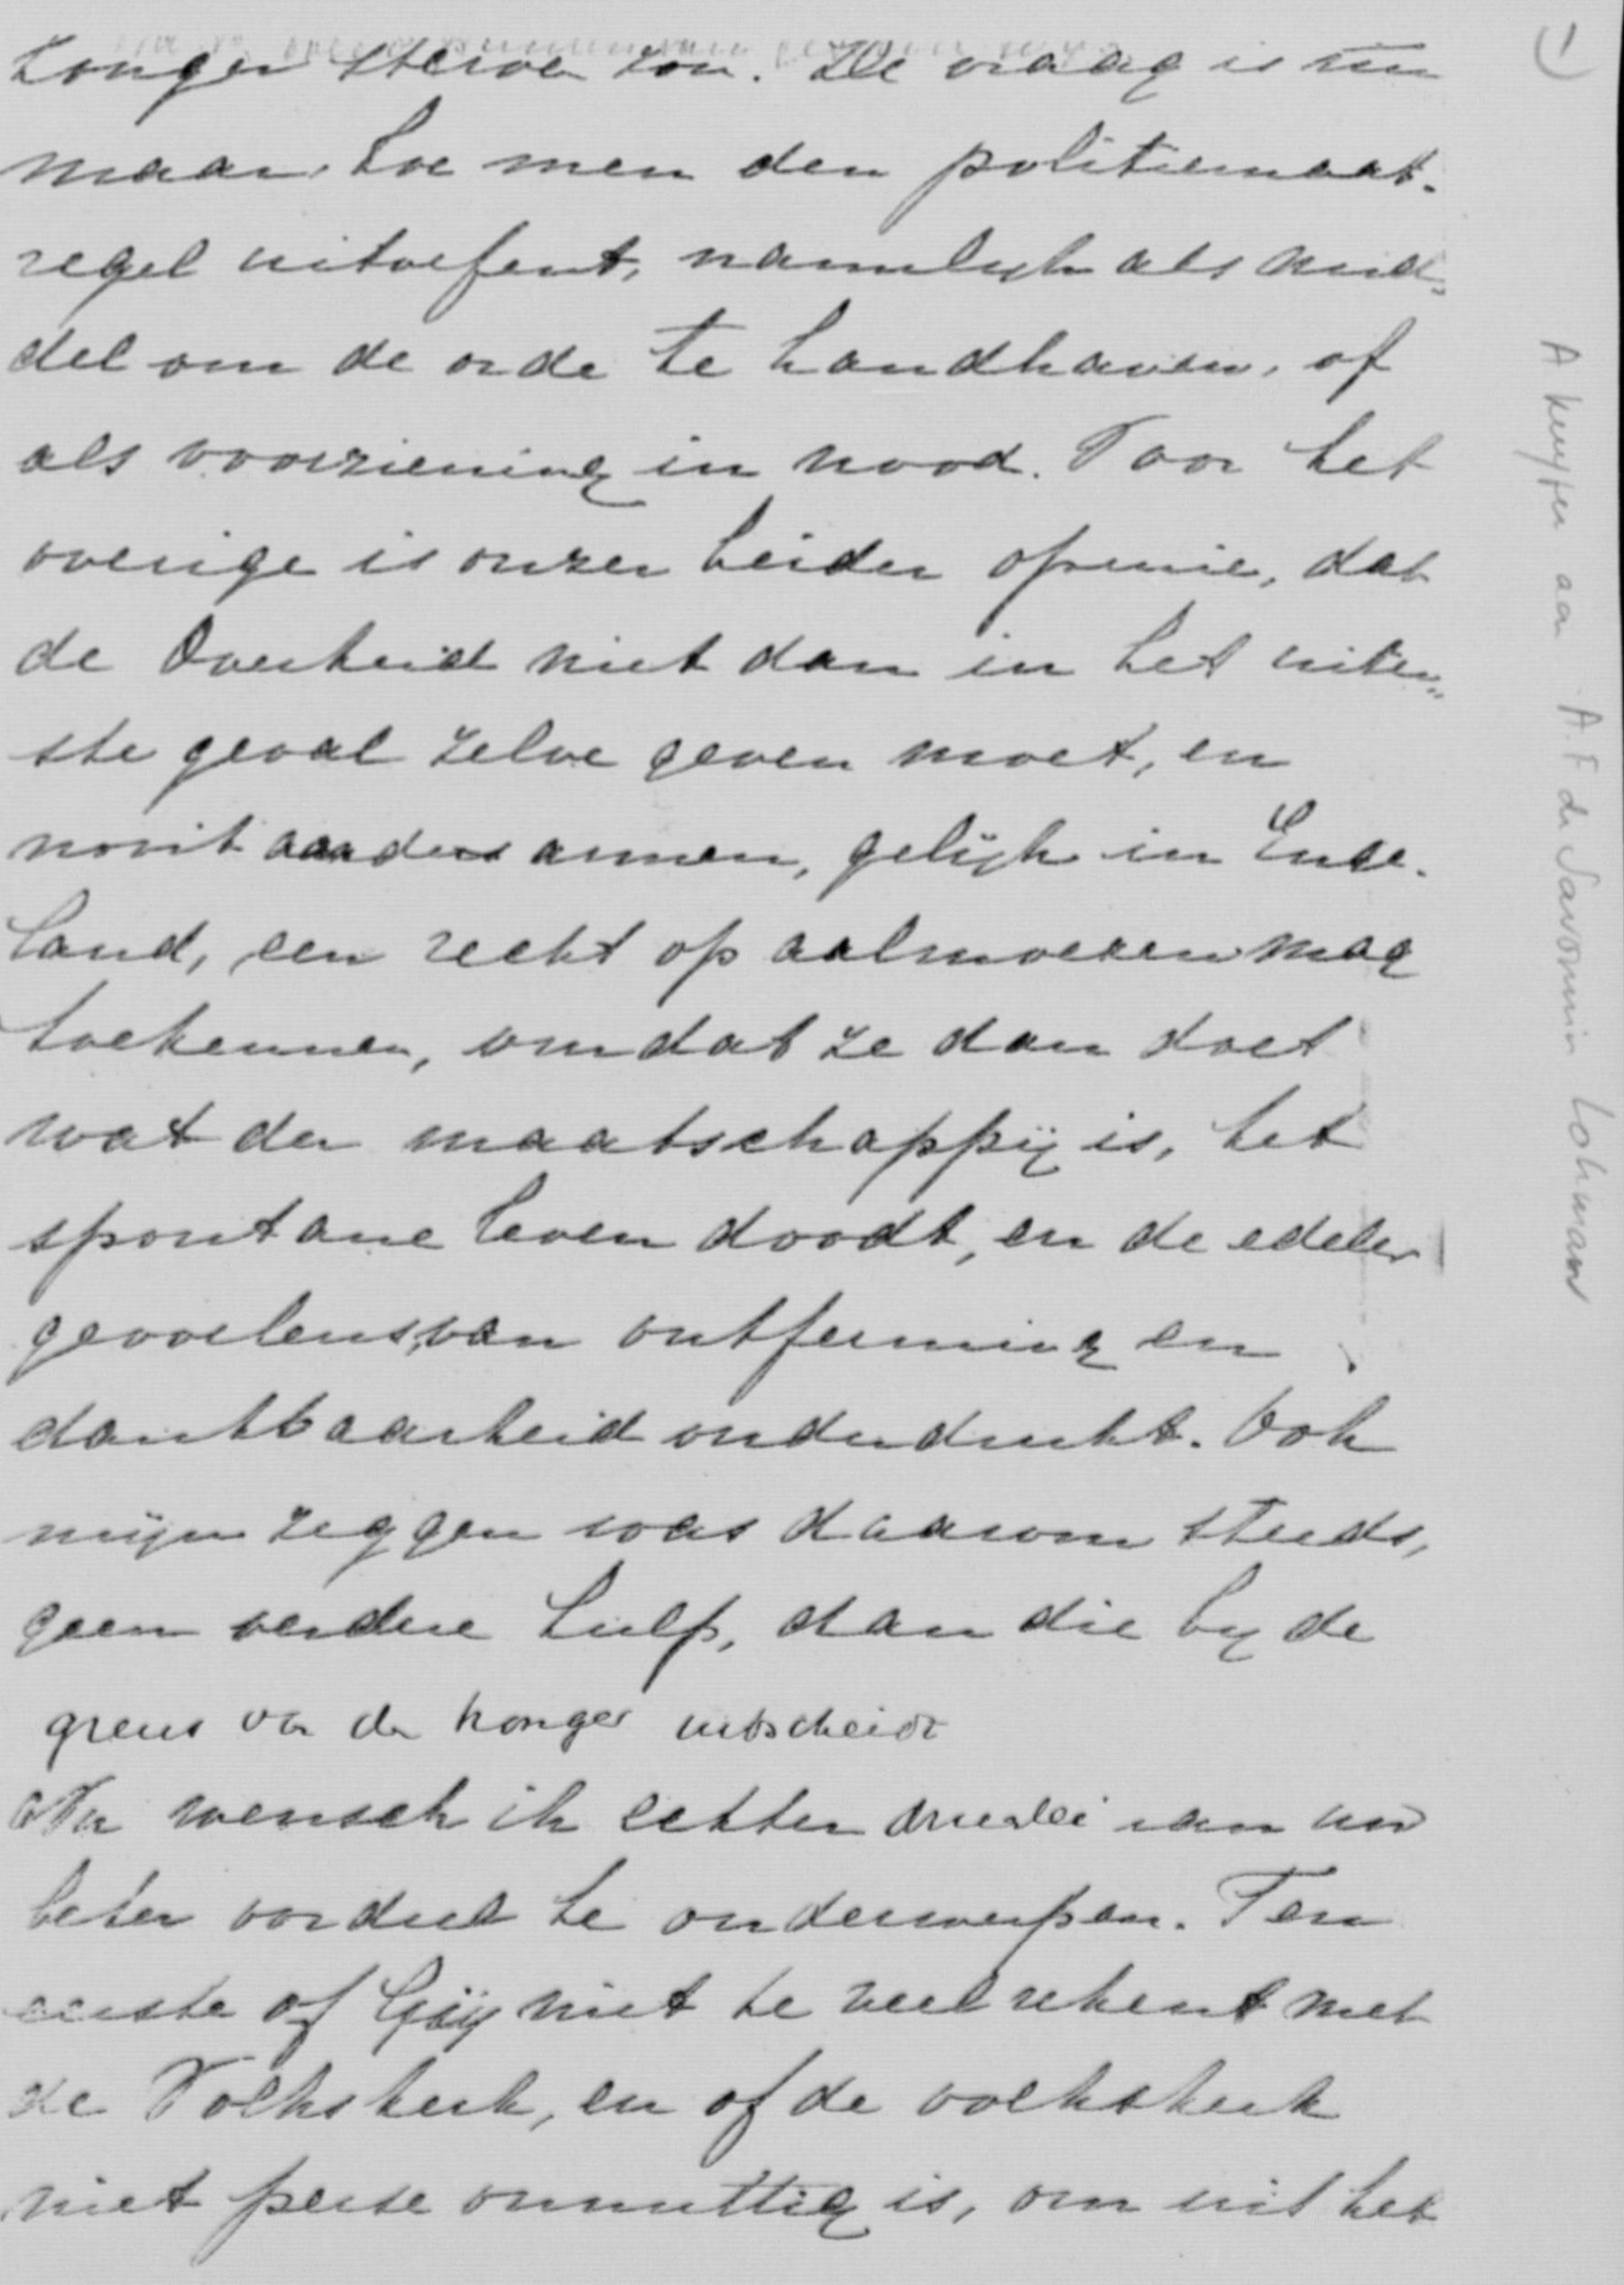 honger sterven zou. De vraag is nu
maar, hoe men den politiemaat-
regel uitoefent, namelijk als mid-
del om de orde te handhaven, of
als voorziening in nood. Voor het
overige is onzer beider opinie, dat
de Overheid niet dan in het uiter-
ste geval zelve geven moet, en
nooit aan den armen, gelijk in Enge-
land, een recht op aalmoezen mag
toekennen, omdat ze dan doet
wat der maatschappij is, het
spontane leven doodt, en de edeler
gevoelens, van ontferming en
dankbaarheid onderdrukt. Ook
mijn zeggen was daarom steeds,
geen verdere hulp, dan die by de
grens van de honger uitscheidt
Nu wensch ik echter drieërlei aan uw
beter oordeel te onderwerpen. Ten
eerste of Gij niet te veel rekent met
de Volkskerk, en of de volkskerk
niet perse onnuttig is, om uit het
A Kuyper aan A.F de Savornin Lohman